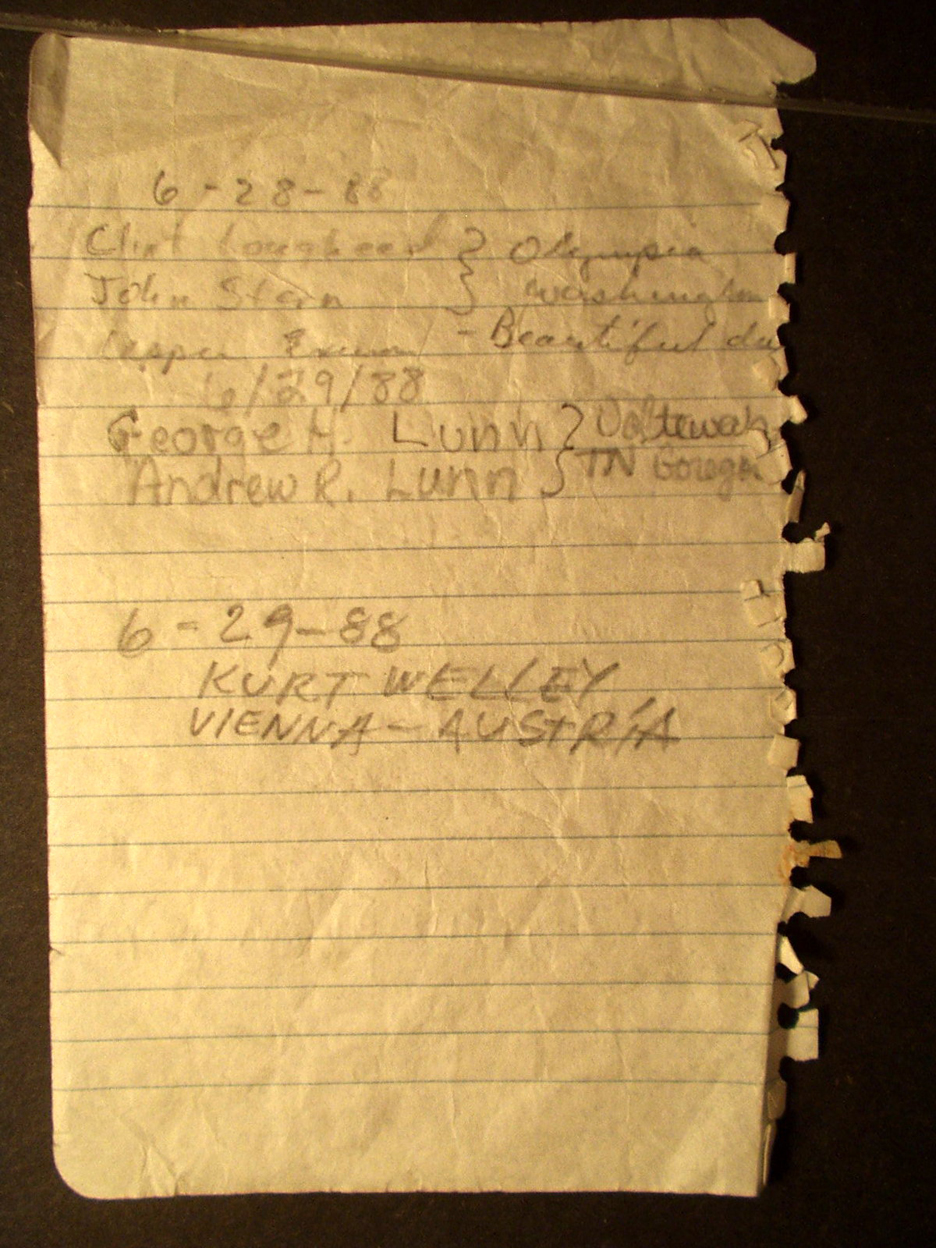 6-28-88
Clint Lougheed } Olympia
John Stern } Washington
Upper Exum - Beautiful day
6/29/88
George H. Lunn } Ooltewah,
Andrew R. Lunn } TN
6-29-88
KURT WELLEY
VIENNA-AUSTRIA